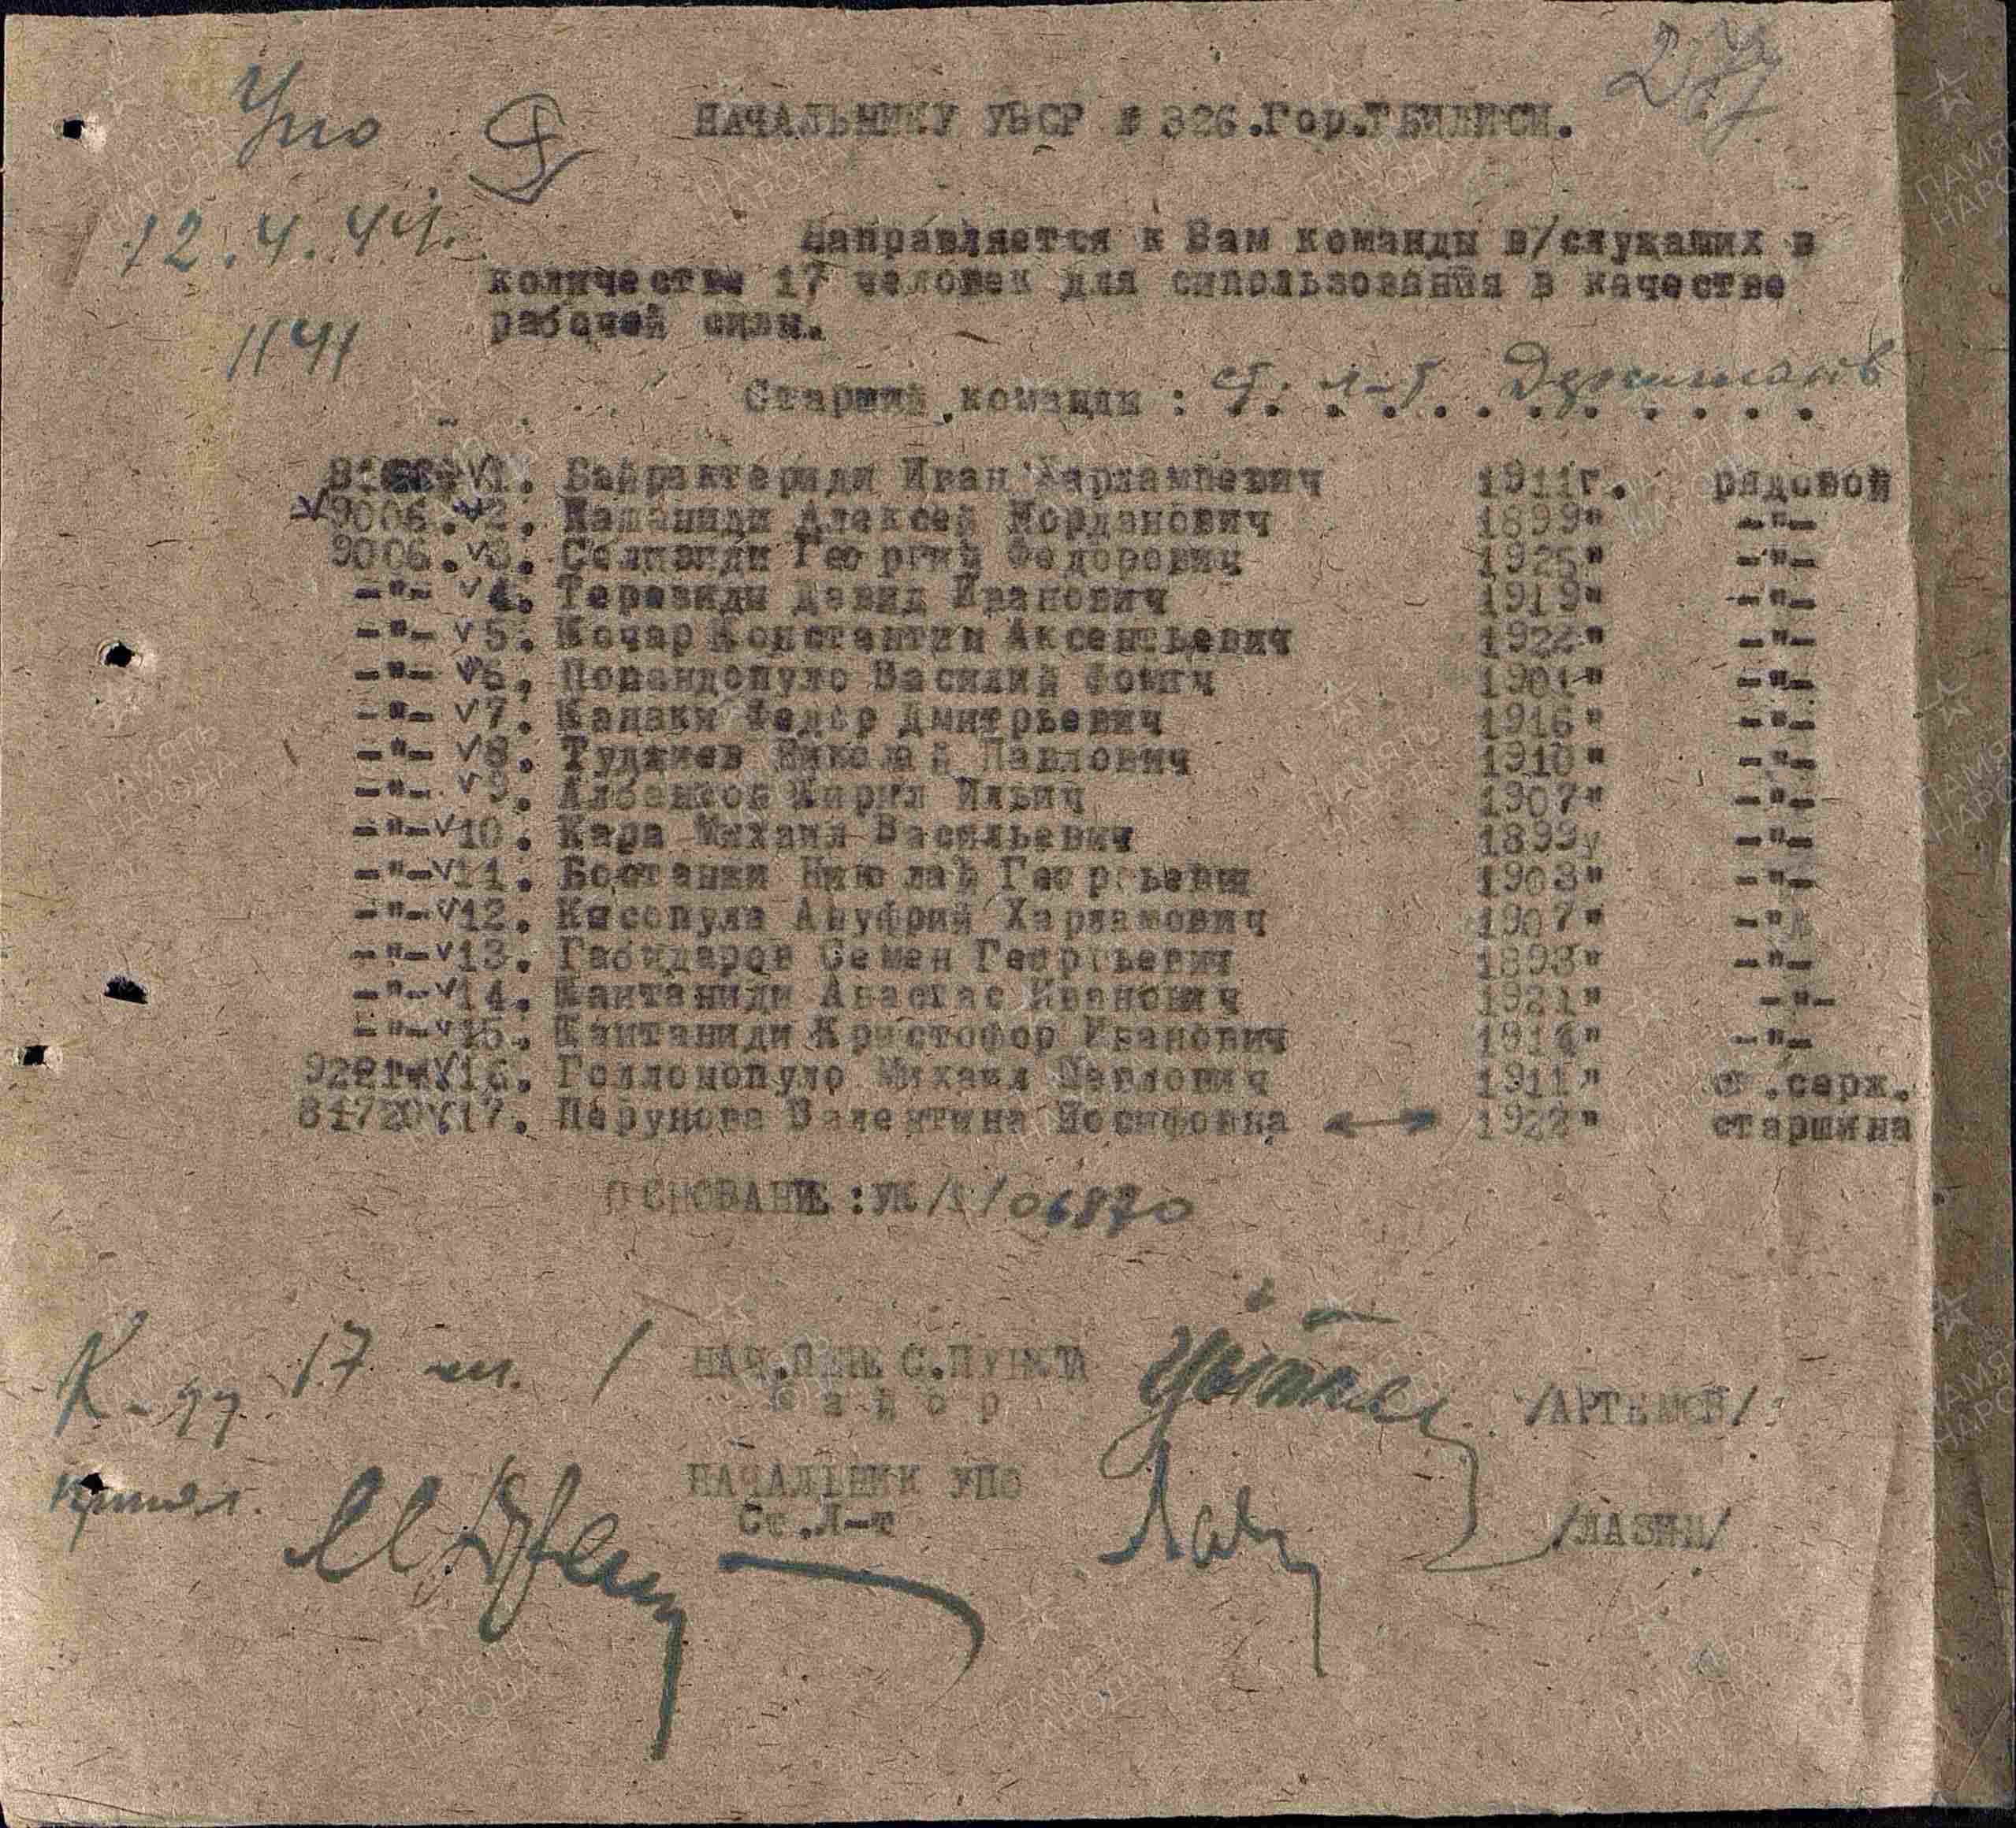 Упо
НАЧАЛЬНИКУ УВСР № 326.Гор.ТБИЛИСИ.
12.4.44.
Направляется к Вам команды в/служащих в
количестве 17 человек для сипользования в качестве
рабочей силы.
1141
Старший команды : ст. л-т
1. Байрактериди Иван Харлампевич 1911г. рядовой
9006. 2. Алексей Иорданович 1899" -"-
9006. 3. Георгий Федорович 1925" -"-
-"- 4. Теревиди Давид Иванович 1919" -"-
-"- 5. Кочар Константин Аксентьевич 1922" -"-
-"- 6. Попандопуло Василий Фомич 1901" -"-
-"- 7. Калаки Федор Дмитрьевич 1916" -"-
-"- 8. Туджиев Николай Павлович 1910" -"-
-"- 9. Кирил Ильич 1907" -"-
-"- 10. Кара Михаил Васильевич 1899 -"-
-"- 11. Николай Георгьевич 1903" -"-
-"- 12. Ануфрий Харламович 1907" -"-
-"- 13. Семен Георгьевич 1898" -"-
-"- 14. Кантаниди Авастас Иванович 1921" -"-
-"- 15. Кантаниди Кристофор Иванович 1914" -"-
16. Михаил Павлович 1911" ст.серж.
17. Перунова Валентина Иосифовна 1922" старшина
ОСНОВАНИЕ :УК/1/06870
К-ду 17 чел.
НАЧ.ПЕРЕС.ПУНКТА
майор /АРТЕМОВ/
принял.
НАЧАЛЬНИК УПО
Ст.Л-т /ЛАЗИН/